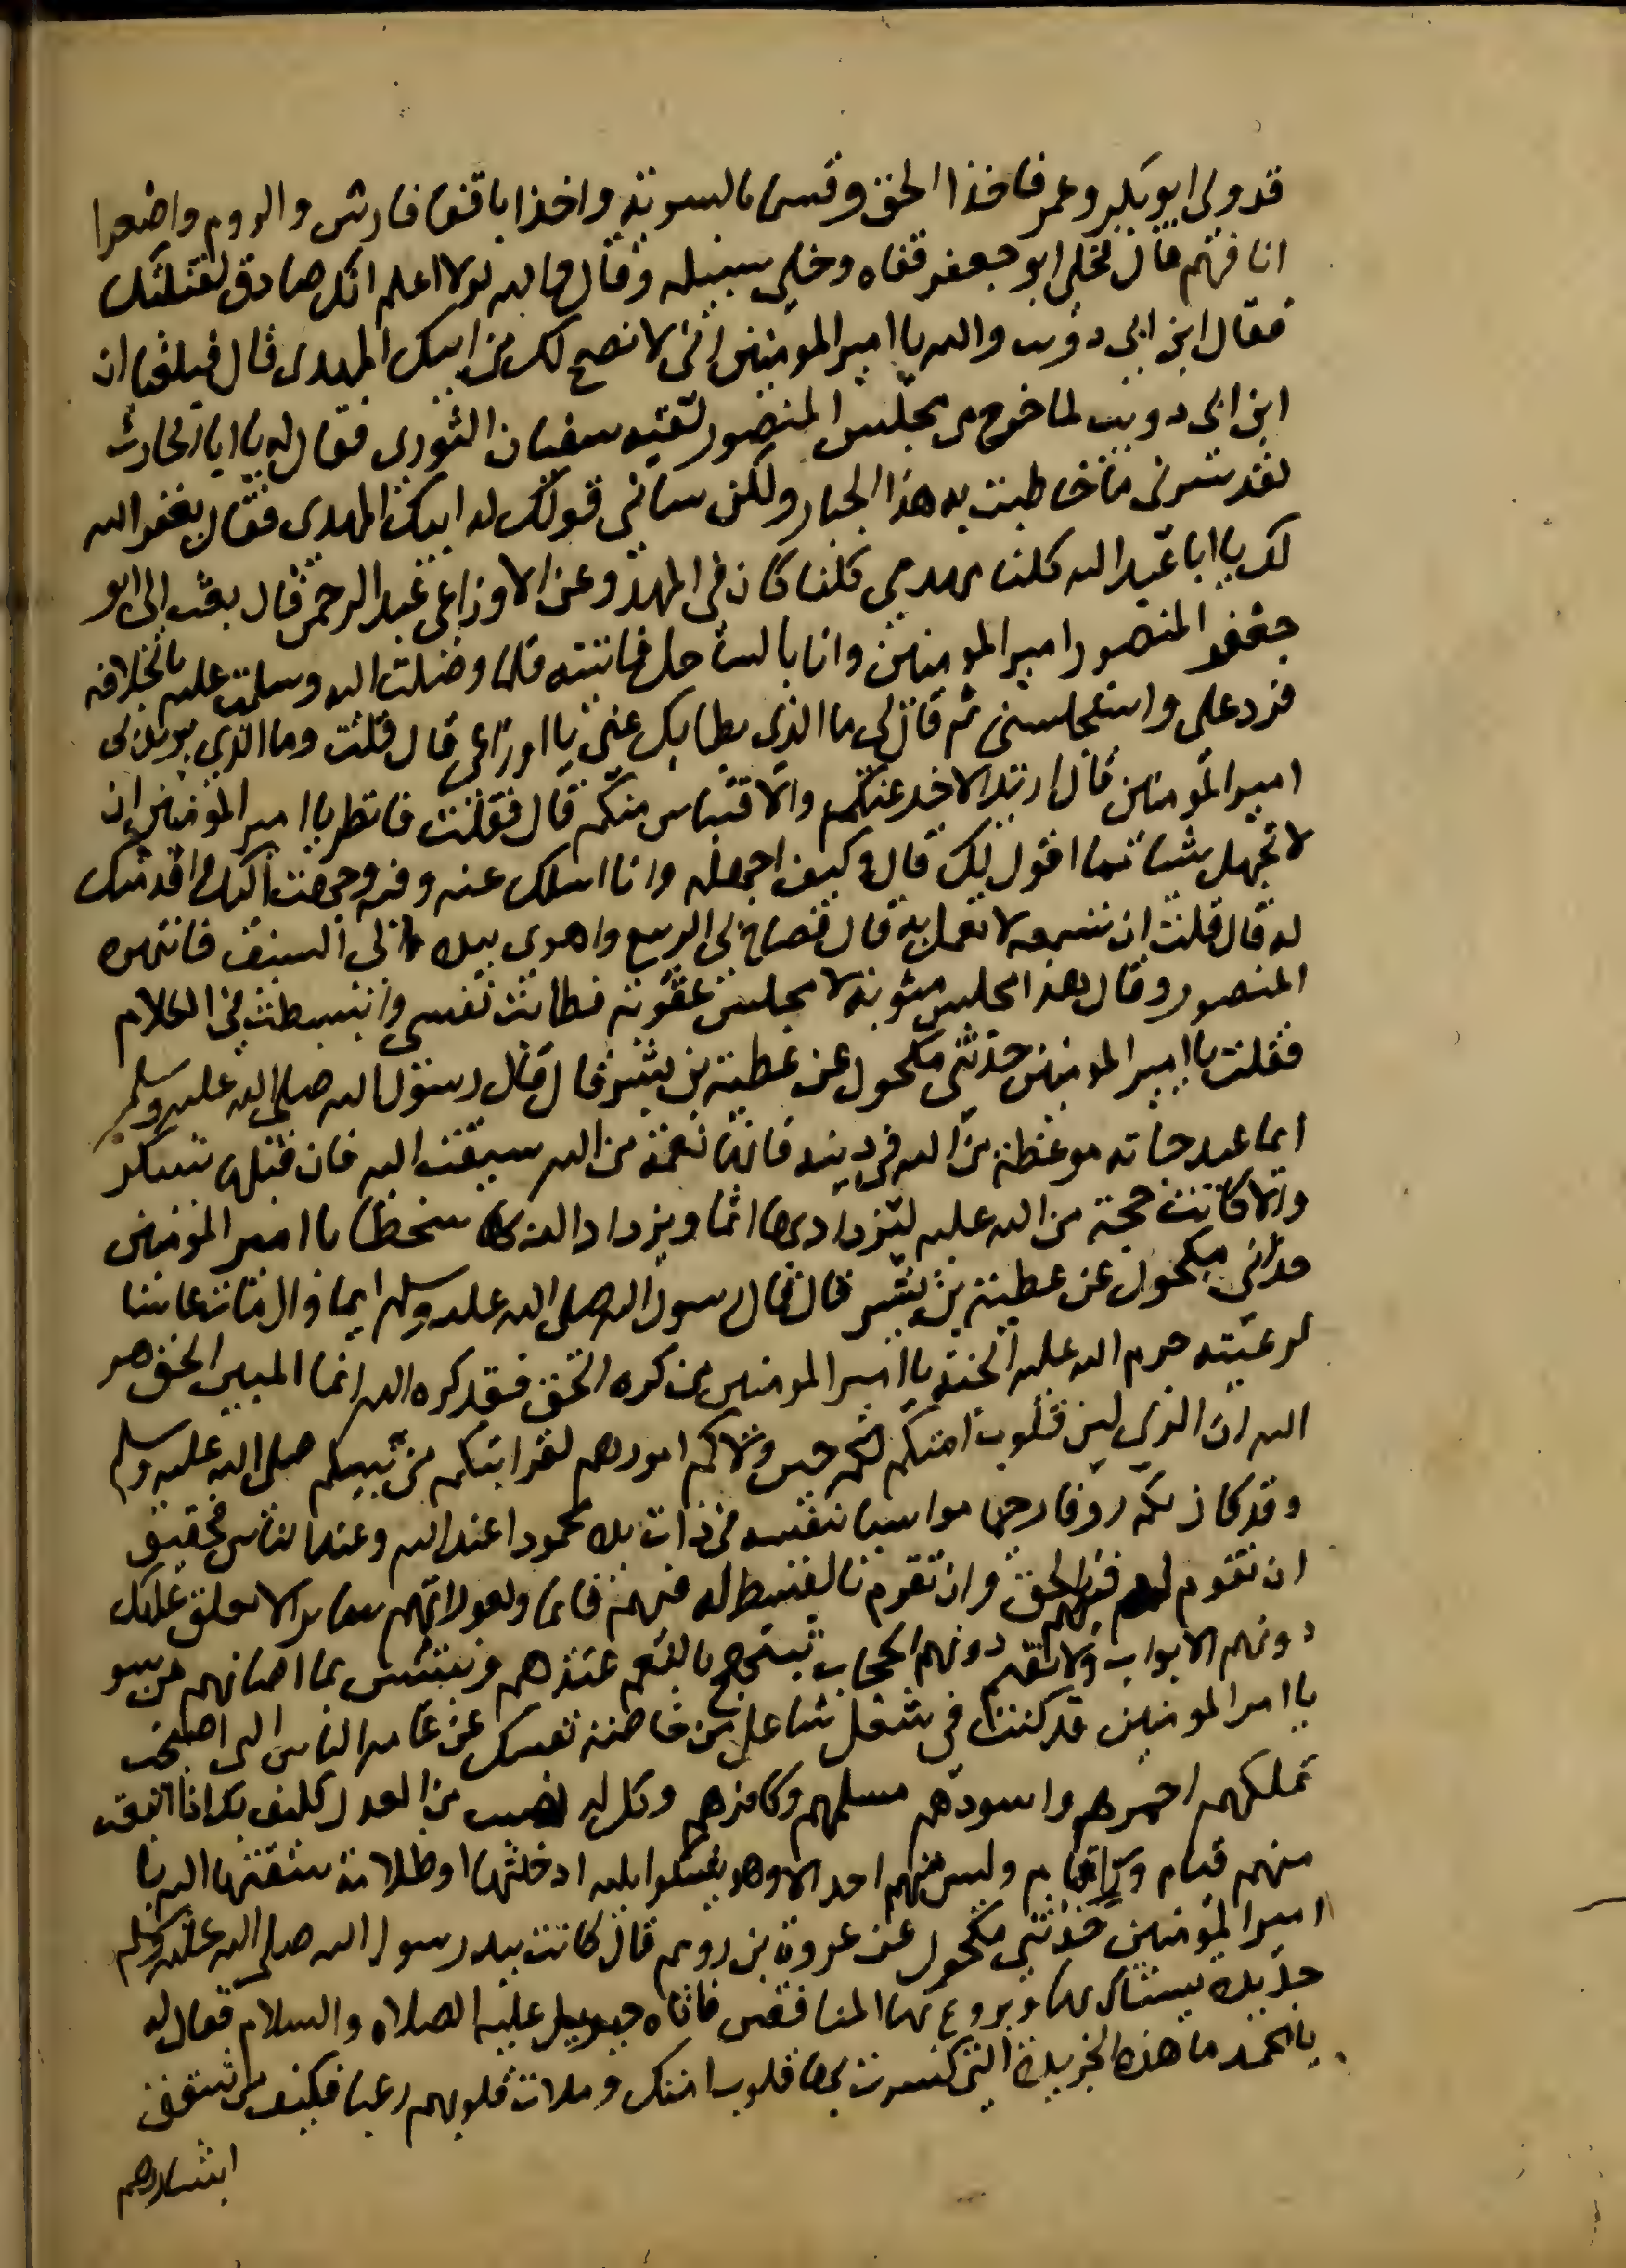 قد ولى ابو بكر وعمر فاخذا الحق وقسما بالسوية واخذا باقفا فارس والروم واصغرا
انافهم قال فخلى ابو جعفر قفاه وخلى سبيله وقال والله لولا اعلم انك صادق لقتلتك
فقال ابن ابي دويب والله يا امير المومنين اني لانصح لك من ابنك المهدى قال فبلغنا ان
ابن ابي دويب لما خرج من مجلس المنصور لقيه سفيان الثورى فقال له يا ابا الحارث
لقد سرنى ما خاطبت به هذا الجبار ولكن ساني قولك له ابنك المهدى فقال يغفر الله
لك يا ابا عبد الله كلنا مهدي كلنا كان في المهد وعن الاوزاعي عبد الرحمن قال بعث الى ابو
جعفر المنصور امير المومنين وانا بالساحل فاتيته فلما وصلت اليه وسلمت عليه بالخلافه
فرد على واستجلسنى ثم قال لي ما الذي بطا بك عني يا اوزاعى قال قلت وما الذي يريد لى
امير المومنين قال اريد الاخد عنكم والاقتباس منكم قال فقلت فانظر يا امير المومنين ان
لا تجهل شيا مما اقول لك قال وكيف اجهله وانا اسلك عنه وفيه وجهت اليك واقدمتك
له قال قلت ان تسمعه لا تعمل به قال فصاح لى الربيع واهوى بيده الى السيف فانتهره
المنصور وقال هذا مجلس مثوبة لا مجلس عقوبة فطابت نفسي وانبسطت في الكلام
فقلت يا امير المومنين حدثني مكحول عن عطية بن بشير قال قال رسول الله صلى الله عليه وسلم
ايما عبد جاته موعظة من الله في دينه فانها نعمة من الله سيقت اليه فان قبلها بشكر
والا كانت حجة من الله عليه ليزداد بها اثما ويزداد الله بها سخطا يا امير المومنين
حدثنى مكحول عن عطية بن بشير قال قال رسول الله صلى الله عليه وسلم ايما وال مات غاشا
لرعيته حرم الله عليه الجنة يا امير المومنين من كره الحق فقد كره الله انما المبين الحق هو
الله ان الذي لين قلوب امتكم لكم حين ولاكم امورهم لقرابتكم من نبيكم صلى الله عليه وسلم
وقد كان بكم روفا رحيما مواسيا بنفسه في ذات يده محمودا عند الله وعند الناس فحقيق
ان تقوم لهم فيهم بالحق وان تقوم بالقسط له فيهم قايما ولعوراتهم ساترا لا تغلق عليك
دونهم الابواب ولا تقم دونهم الحجاب تبتهج بالنعم عندهم وتبتئس بما اصابهم من سو
يا امير المومنين قد كنت في شغل شاغل من خاصة نفسك عن عامه الناس الى اصبحت
تملكهم احمرهم واسودهم مسلمهم وكافرهم وكل له نصيب من العدل فكيف بك اذا اتبعك
منهم قيام ورا قيام وليس منهم احد الا وهو يشكوا بليه ادخلتها او ظلامة سقتها اليه يا
امير المومنين حدثني مكحول عن عروة بن رويم قال كانت بيد رسول الله صلى الله عليه وسلم
جريدة يستاك بها ويروع بها المنافقين فاتاه جبريل عليه الصلاه والسلام فقال له
يا محمد ما هذه الجريدة التي كسرت بها قلوب امتك وملات قلوبهم رعبا فكيف من شقق
ابشارهم